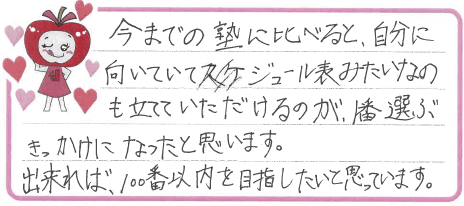 今までの塾に比べると、自分に
向いていてスケジュール表みたいなの
も立てていただけるのが、1番選ぶ
きっかけになったと思います。
出来れば、100番以内を目指したいと思っています。